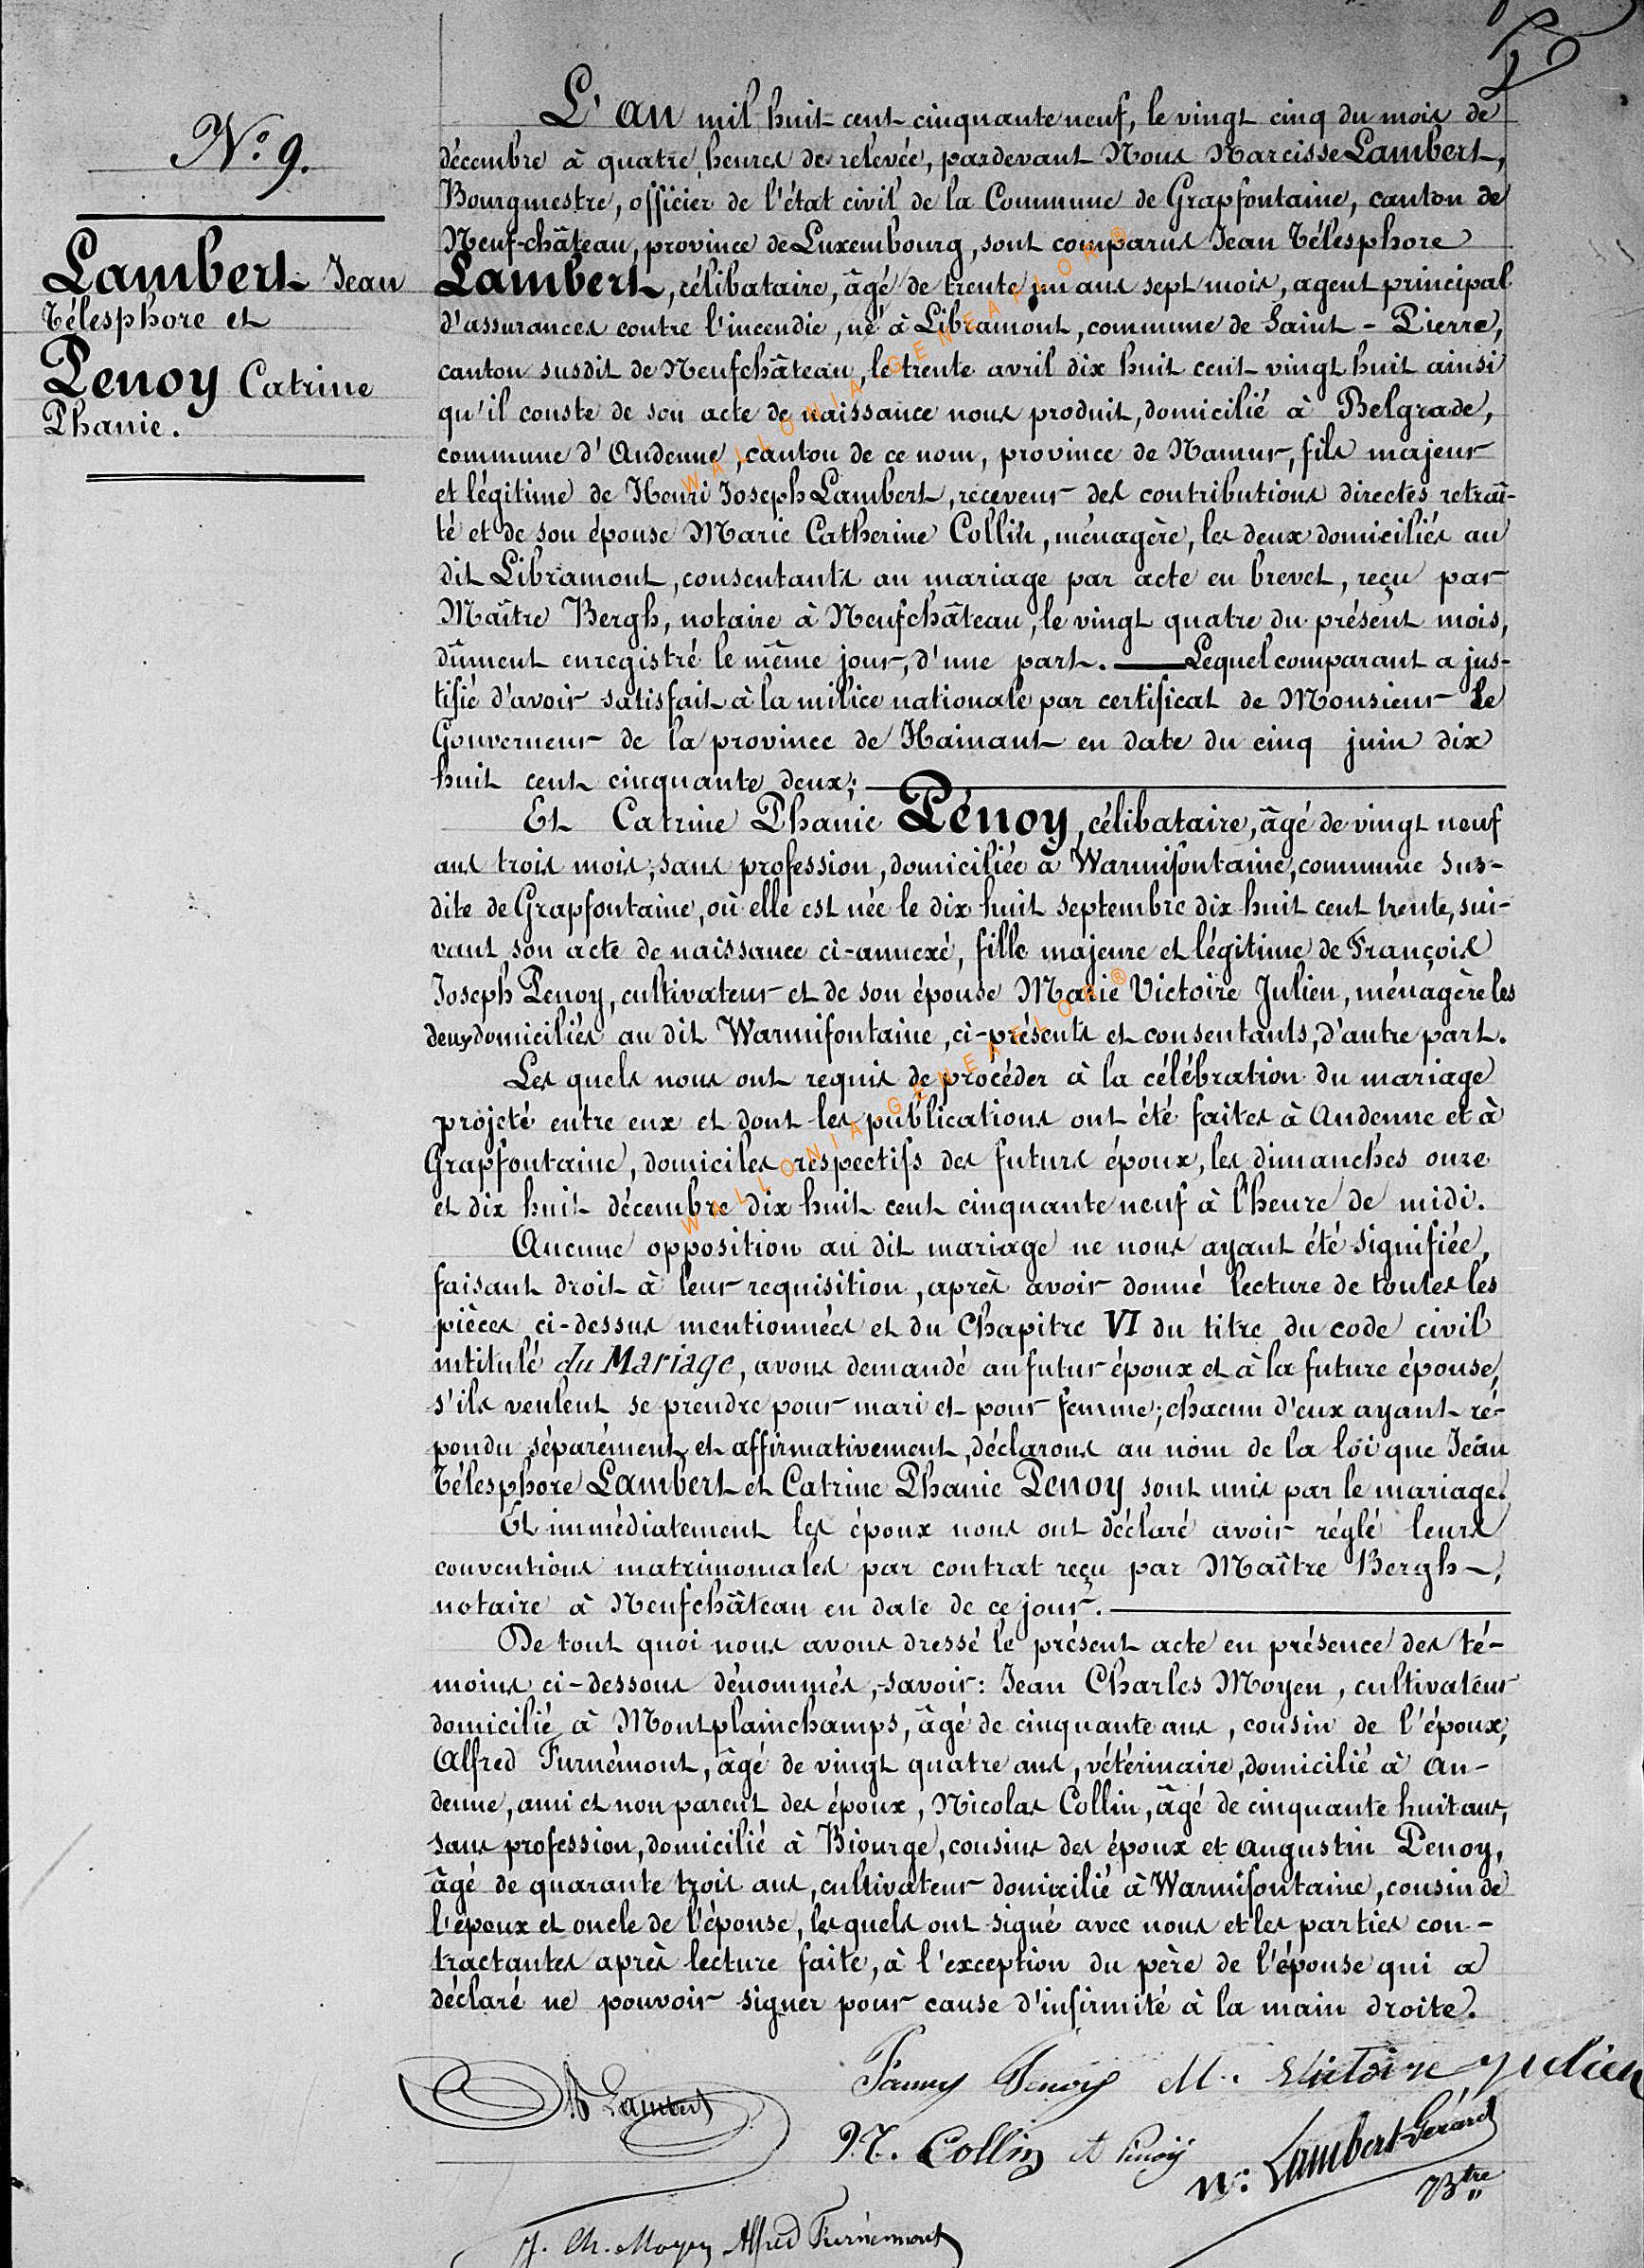 N.o 9.
Lambert Jean
Télesphore et
Penoy Catrine
Phanie.
L'an mil huit cent cinquante neuf, le vingt cinq du mois de
décembre à quatre heures de relevée, pardevant Nous Narcisse Lambert,
Bourgmestre, officier de l'état civil de la Commune de Grapfontaine, canton de
Neuf-château, province de Luxembourg, sont comparus Jean Télesphore
Lambert, célibataire, âgé de trente un ans sept mois, agent principal
d'assurances contre l'incendie, né à Libramont, commune de Saint-Pierre,
canton susdit de Neufchâteau, le trente avril dix huit cent vingt huit ainsi
qu'il conste de son acte de naissance nous produit, domicilié à Belgrade,
commune d'Andenne, canton de ce nom, province de Namur, fils majeur
et légitime de Henri Joseph Lambert, receveur des contributions directes retrai-
té et de son épouse Marie Catherine Collin, ménagère, les deux domiciliés au
dit Libramont, consentants au mariage par acte en brevet, reçu par
Maître Bergh, notaire à Neufchâteau, le vingt quatre du présent mois,
dûment enregistré le même jour, d'une part. — Lequel comparant a jus-
tifié d'avoir satisfait à la milice nationale par certificat de Monsieur le
Gouverneur de la province de Hainaut en date du cinq juin dix
huit cent cinquante deux;
Et Catrine Phanie Pénoy, célibataire, âgé de vingt neuf
ans trois mois, sans profession, domiciliée à Warmifontaine, commune sus-
dite de Grapfontaine, où elle est née le dix huit septembre dix huit cent trente, sui-
vant son acte de naissance ci-annexé, fille majeure et légitime de François
Joseph Penoy, cultivateur et de son épouse Marie Victoire Julien, ménagère les
deux domiciliés au dit Warmifontaine, ci-présents et consentants, d'autre part.
Les quels nous ont requis de procéder à la célébration du mariage
projeté entre eux et dont les publications ont été faites à Andenne et à
Grapfontaine, domiciles respectifs des futurs époux, les dimanches onze
et dix huit décembre dix huit cent cinquante neuf à l'heure de midi.
Aucune opposition au dit mariage ne nous ayant été signifiée,
faisant droit à leur requisition, après avoir donné lecture de toutes les
pièces ci-dessus mentionnées et du Chapitre VI du titre du code civil
intitulé du Mariage, avons demandé au futur époux et à la future épouse,
s'ils veulent se prendre pour mari et pour femme; chacun d'eux ayant ré-
pondu séparément et affirmativement, déclarons au nom de la loi que Jean
Télesphore Lambert et Catrine Phanie Penoy sont unis par le mariage.
Et immédiatement les époux nous ont déclaré avoir réglé leurs
conventions matrimoniales par contrat reçu par Maître Bergh,
notaire à Neufchâteau en date de ce jour.
De tout quoi nous avons dressé le présent acte en présence des té-
moins ci-dessous dénommés, savoir: Jean Charles Moyen, cultivateur
domicilié à Montplainchamps, âgé de cinquante ans, cousin de l'époux,
Alfred Furnémont, âgé de vingt quatre ans, vétérinaire, domicilié à An-
denne, ami et non parent des époux, Nicolas Collin, âgé de cinquante huit ans,
sans profession, domicilié à Biourge, cousins des époux et Augustin Penoy,
âgé de quarante trois ans, cultivateur domicilié à Warmifontaine, cousin de
l'époux et oncle de l'épouse, les quels ont signé avec nous et les parties con-
tractantes après lecture faite, à l'exception du père de l'épouse qui a
déclaré ne pouvoir signer pour cause d'infirmité à la main droite.
Lambert Fanny Penoy M. Victoire Julien
N. Collin A Penoy N. Lambert-Gérard
Btre
J. Ch. Moyen Alfred Furnémont
WALLONIA-GENEAFLOR®
WALLONIA-GENEAFLOR®